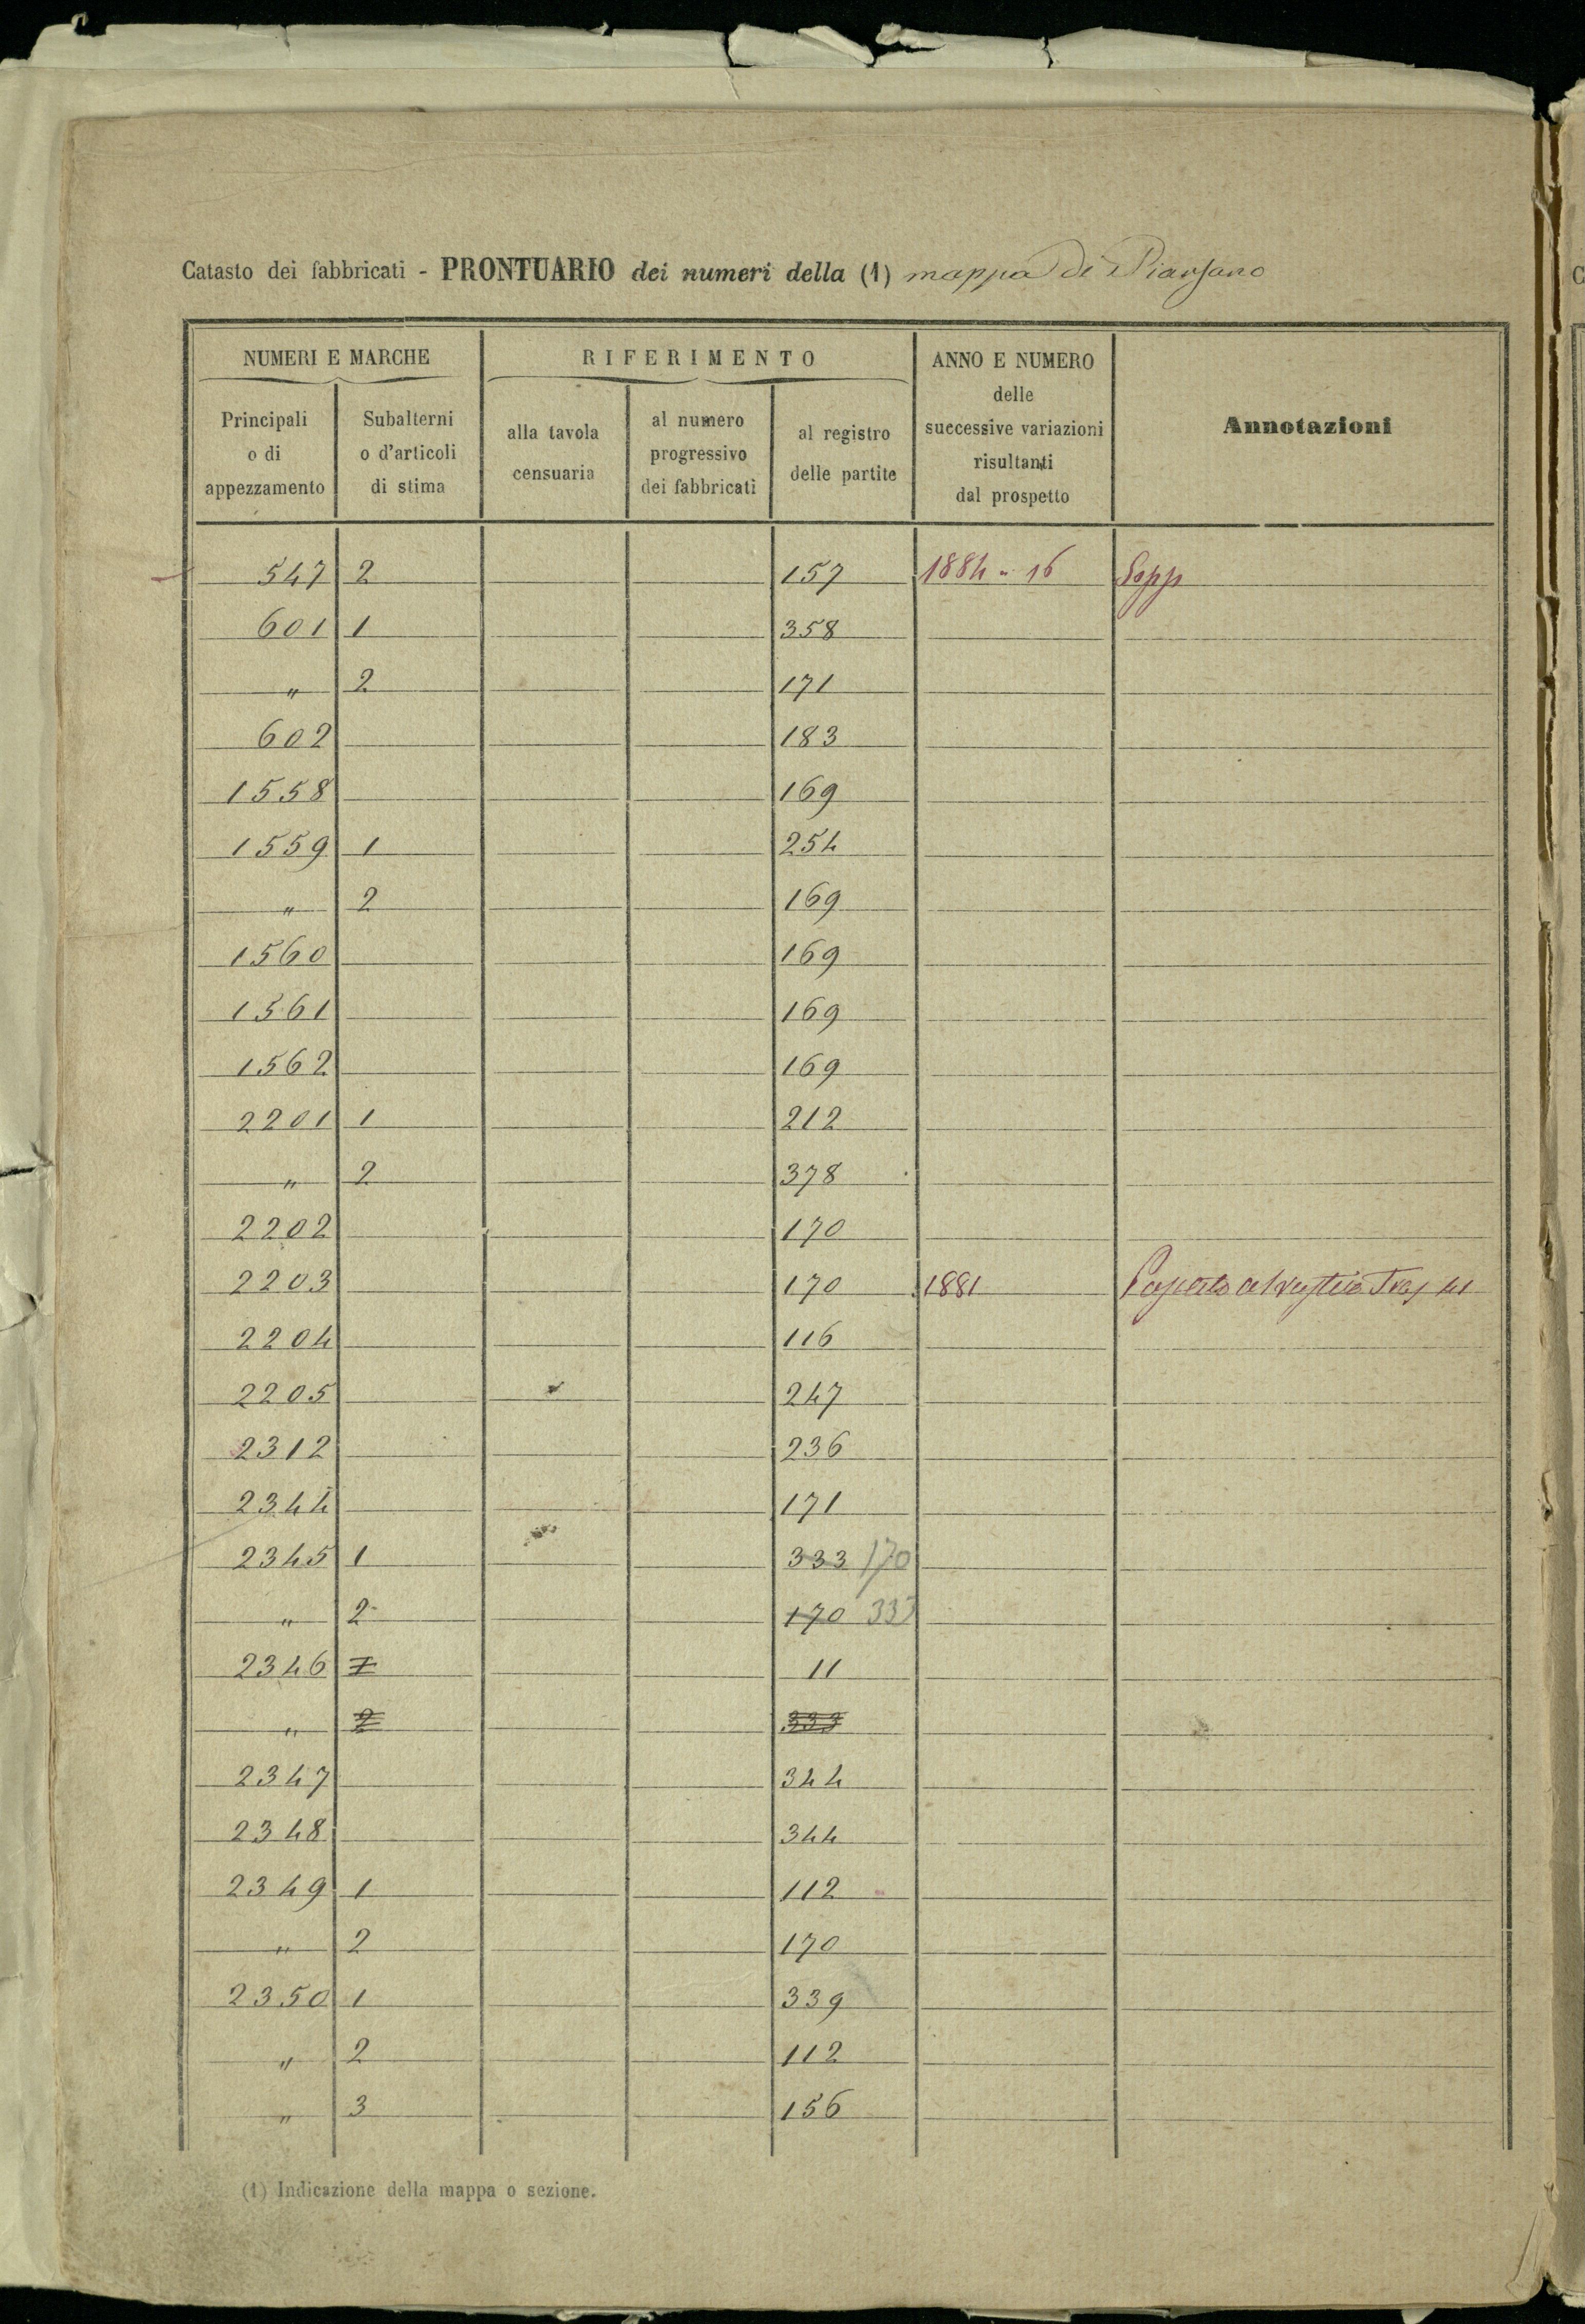 Catasto dei fabbricati - PRONTUARIO dei numeri della (1) mappa di Piansano
NUMERI E MARCHE
RIFERIMENTO
ANNO E NUMERO delle successive variazioni risultanti dal prospetto
Annotazioni
Principali o di appezzamento
Subalterni o d'articoli di stima
alla tavola censuaria
al numero progressivo dei fabbricati
al registro delle partite
547 2 157 1884 " 16 Sopp
601 1 358
" 2 171
602 183
1558 169
1559 1 254
" 2 169
1560 169
1561 169
1562 169
2201 1 212
" 2 378
2202 170
2203 170 1881
2204 116
2205 247
2312 236
2344 171
2345 1 333 170
" 2 170 333
2346 1 11
" 2 333
2347 344
2348 344
2349 1 112
" 2 170
2350 1 339
" 2 112
" 3 156
(1) Indicazione della mappa o sezione.